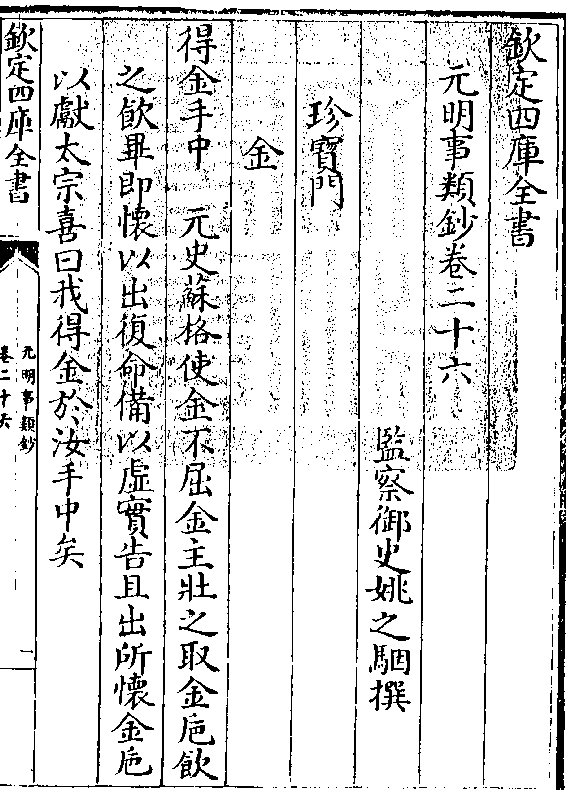 欽定四庫全書
元明事類鈔卷二十六
監察御史姚之駰撰
珍寶門
金
得金手中 元史蘇格使金不屈金主壯之取金卮飲
之飲畢即懷以出復命備以虛實告且出所懷金卮
以獻太宗喜曰我得金於汝手中矣
欽定四庫全書
元明事類鈔
卷二十六
一